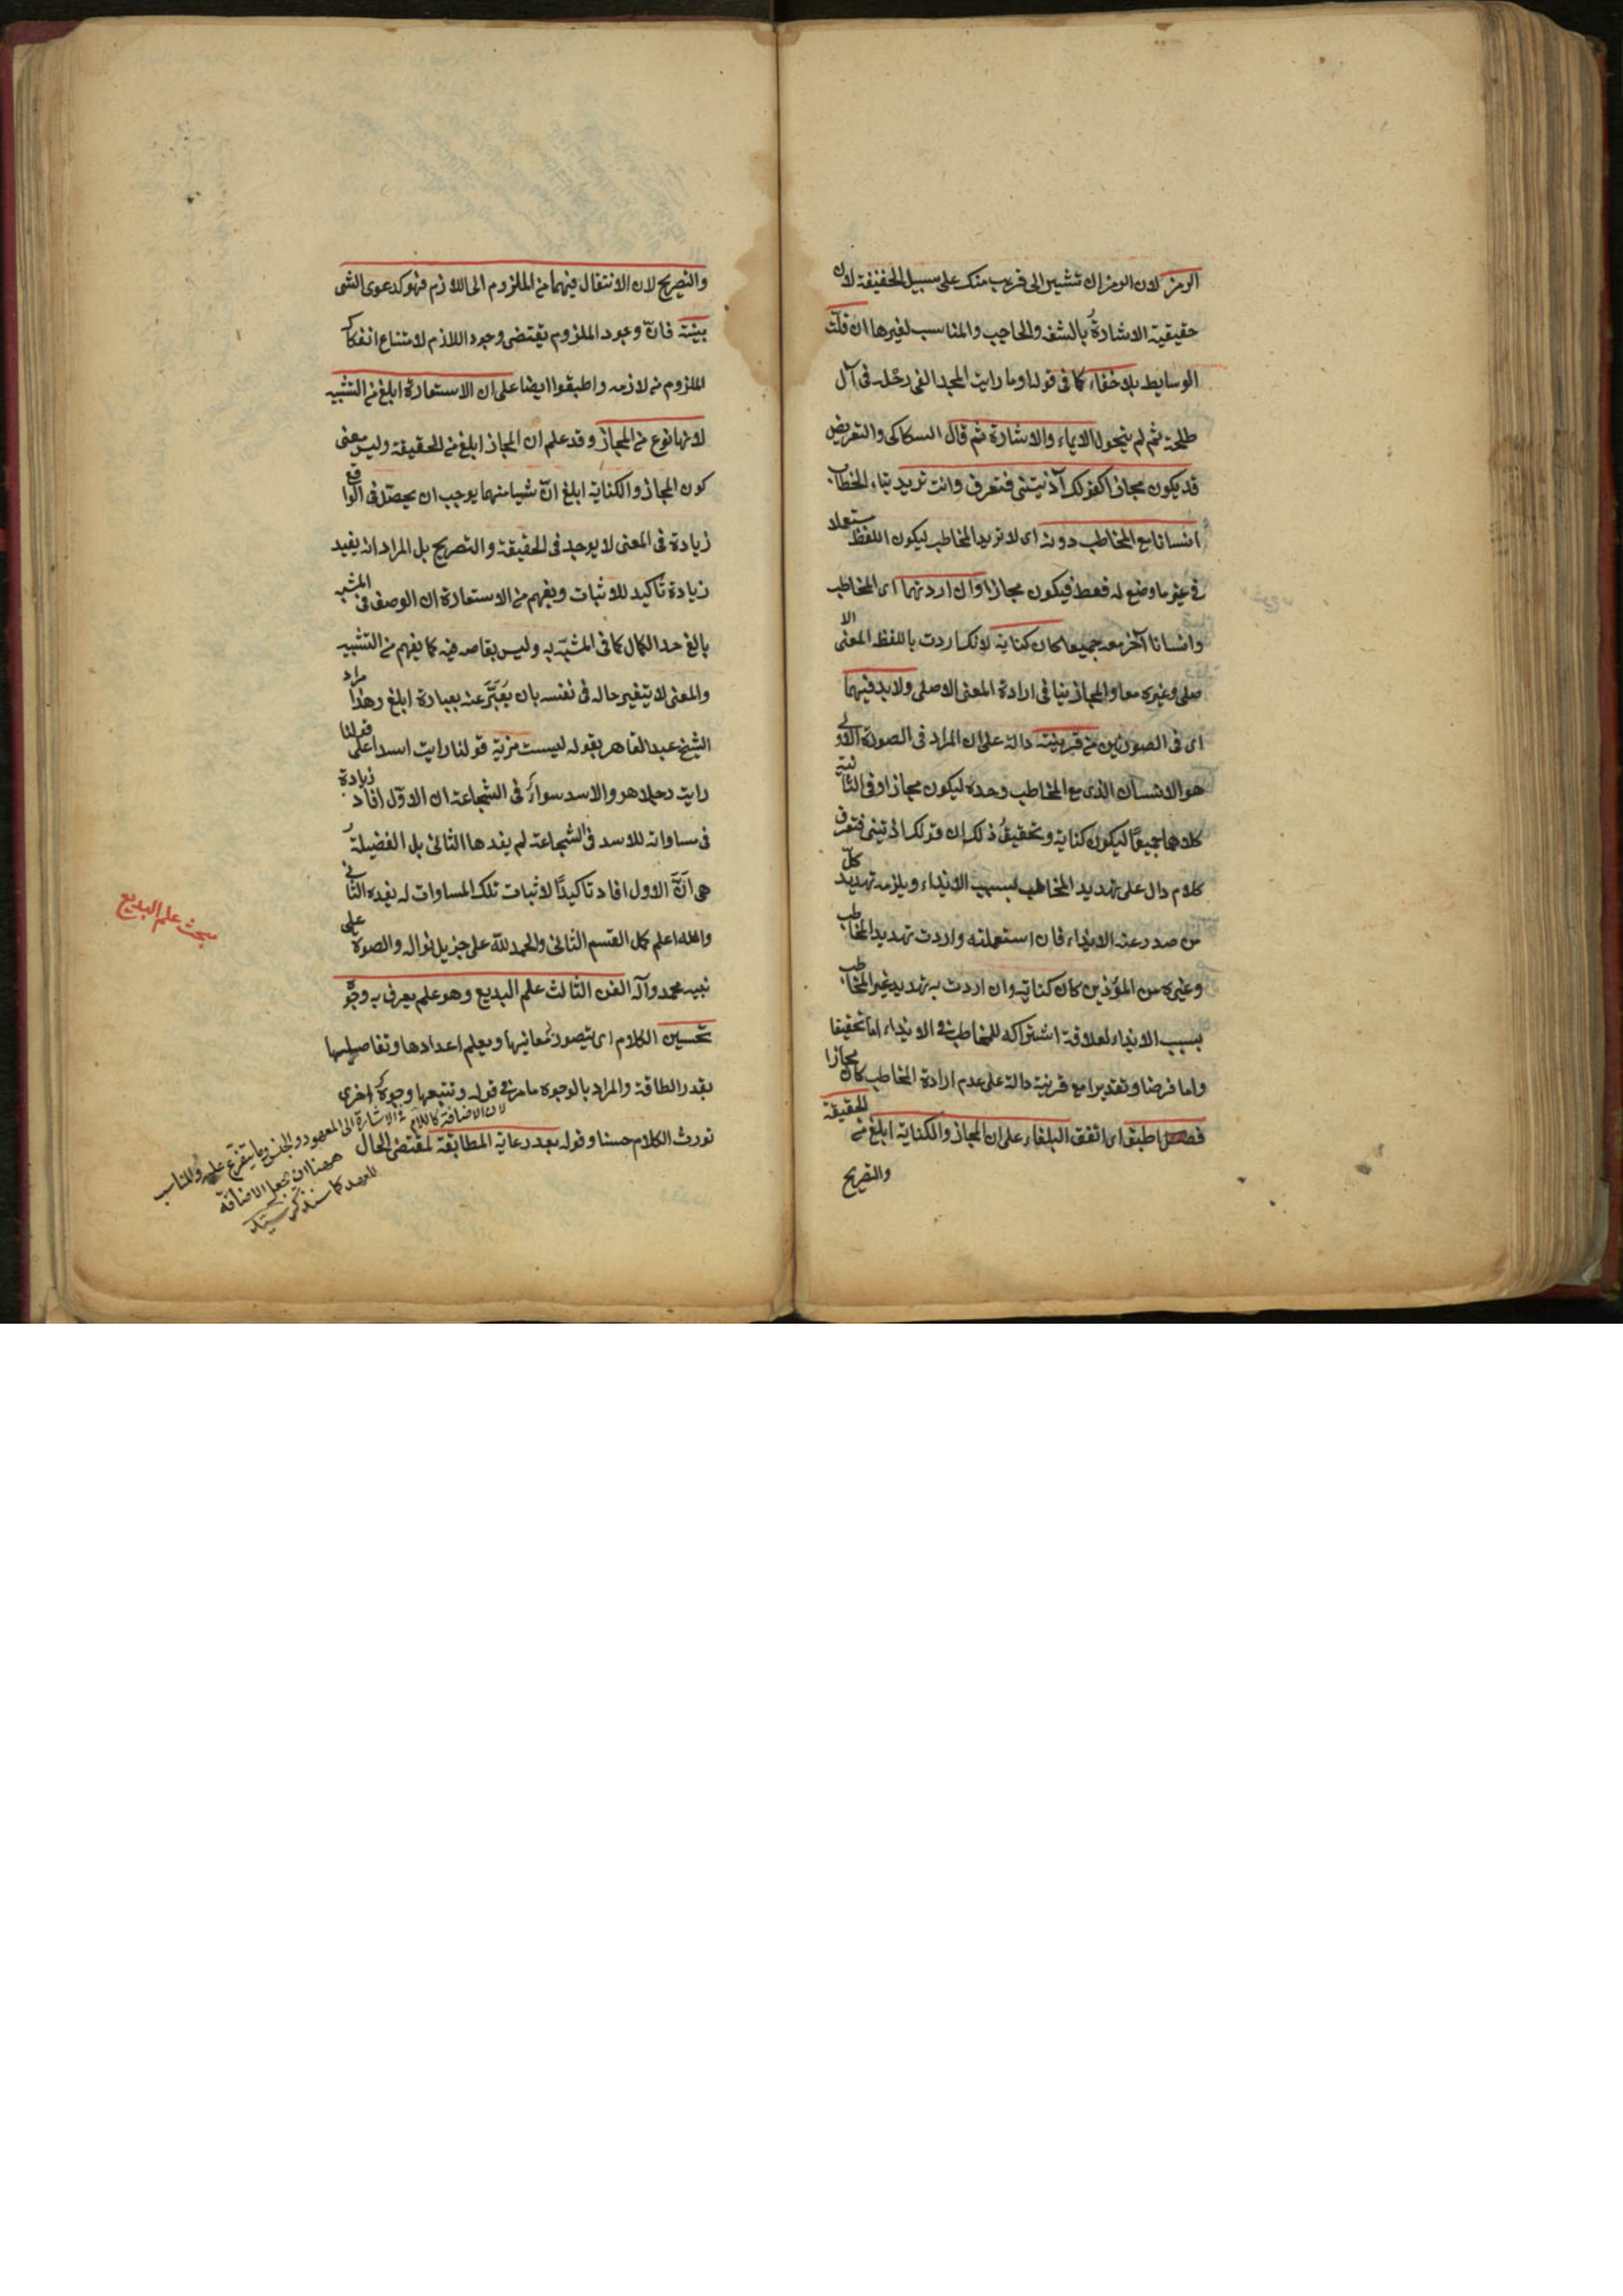 الرمز لان الرمز ان تشير الى قريب منك على سبيل الخفية لان
حقيقية الاشارة بالشفه والحاجب والمناسب لغيرها ان قلّت
الوسايط بلا خفاء كما فى قوله اوما رايت المجد القى رحله فى آل
طلحة ثم لم يتحول الايماء والاشارة ثم قال السكاكى والتعريض
قد يكون مجازا كقولك آذنيتنى فتعرف وانت تريد بتاء الخطاب
انسانا مع المخاطب دونه اى لا تريد المخاطب ليكون اللفظ مستعملا
فى غير ما وضع له فقط فيكون مجازا وان اردتهما اى المخاطب
وانسانا آخر معه جميعا كان كناية لانك اردت باللفظ المعنى الا
صلى وغيره معا والمجاز ينافى ارادة المعنى الاصلى ولا بد فيهما
اى فى الصورتين من قرينة دالة على ان المراد فى الصورة الاولى
هو الانسان الذى مع المخاطب وحده ليكون مجازا وفى الثانية
كلاهما جميعًا ليكون كناية وتحقيق ذلك ان قولك اذنيتنى فتعرف
كلام دال على تهديد المخاطب بسبب الايذاء ويلزمه تهديد كلّ
من صدر عنه الايذاء فان استعملته واردت تهديد المخاطب
وغيره من المؤذين كان كناية وان اردت به تهديد غير المخاطب
بسبب الايذاء لعلاقة اشتراكه للمخاطب فى الايذاء اما تحقيقا
واما فرضا وتقديرا مع قرينة دالة على عدم ارادة المخاطب كان مجازا
فصل اطبق اى اتفق البلغاء على ان المجاز والكناية ابلغ من الحقيقة
والتصريح
والتصريح لان الانتقال فيهما من الملزوم الى اللازم فهو كدعوى الشى
ببينة فانّ وجود الملزوم يقتضى وجود اللازم لامتناع انفكاك
الملزوم من لازمه واطبقوا ايضا على ان الاستعارة ابلغ من التشبيه
لانها نوع من المجاز وقد علم ان المجاز ابلغ من الحقيقة وليس معنى
كون المجاز والكناية ابلغ انّ شيا منهما يوجب ان يحصل فى الواقع
زيادة فى المعنى لا يوجد فى الحقيقة والتصريح بل المراد انه يفيد
زيادة تاكيد للاثبات ويفهم من الاستعارة ان الوصف فى المشبه
بالغ حد الكمال كما فى المشبّه به وليس بقاصر فيه كما يفهم من التشبيه
والمعنى لا يتغير حاله فى نفسه بان يُعَبَّرَ عنه بعبارة ابلغ وهذا مراد
الشيخ عبد القاهر بقوله ليست مزية قولنا رايت اسدا على قولنا
رايت رجلا هو والاسد سواء فى الشجاعة ان الاوّل افاد زيادة
فى مساواته للاسد فى الشجاعة لم يفدها الثانى بل الفضيلةُ
هى اَنَّ الاول افاد تاكيدًا لاثبات تلك المساوات له يفده الثانى
والله اعلم كمل القسم الثانى والحمد لله على جزيل نواله والصوة على
نبيه محمد وآله الفن الثالث علم البديع وهو علم يعرف به وجوه
تحسين الكلام اى يتصور معانيها ويعلم اعدادها وتفاصيلها
بقدر الطاقة والمراد بالوجوه ما مر فى قوله وتتبعها وجوه اخرى
تورث الكلام حسنا وقوله بعد رعاية المطابقة لمقتضى الحال
مبحث علم البديع
لان الاضافة كاللام فى الاشارة الى المعهود والجنس وما يتفرع عليه والمناسب
ههنا ان تجعل الاضافة
للعهد كما سنذكر